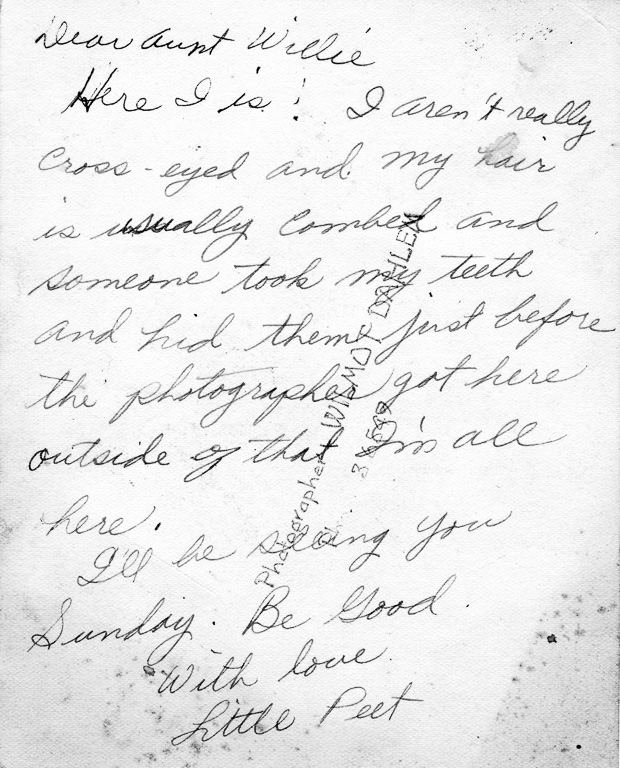 Dear Aunt Willie
Here I is! I aren't really
cross-eyed and my hair
is usually combed and
someone took my teeth
and hid them just before
the photographer got here
outside of that I'm all
here.
I'll be seeing you
Sunday. Be Good.
With love
Little Peet
Photographer WILMOT DAHLEM